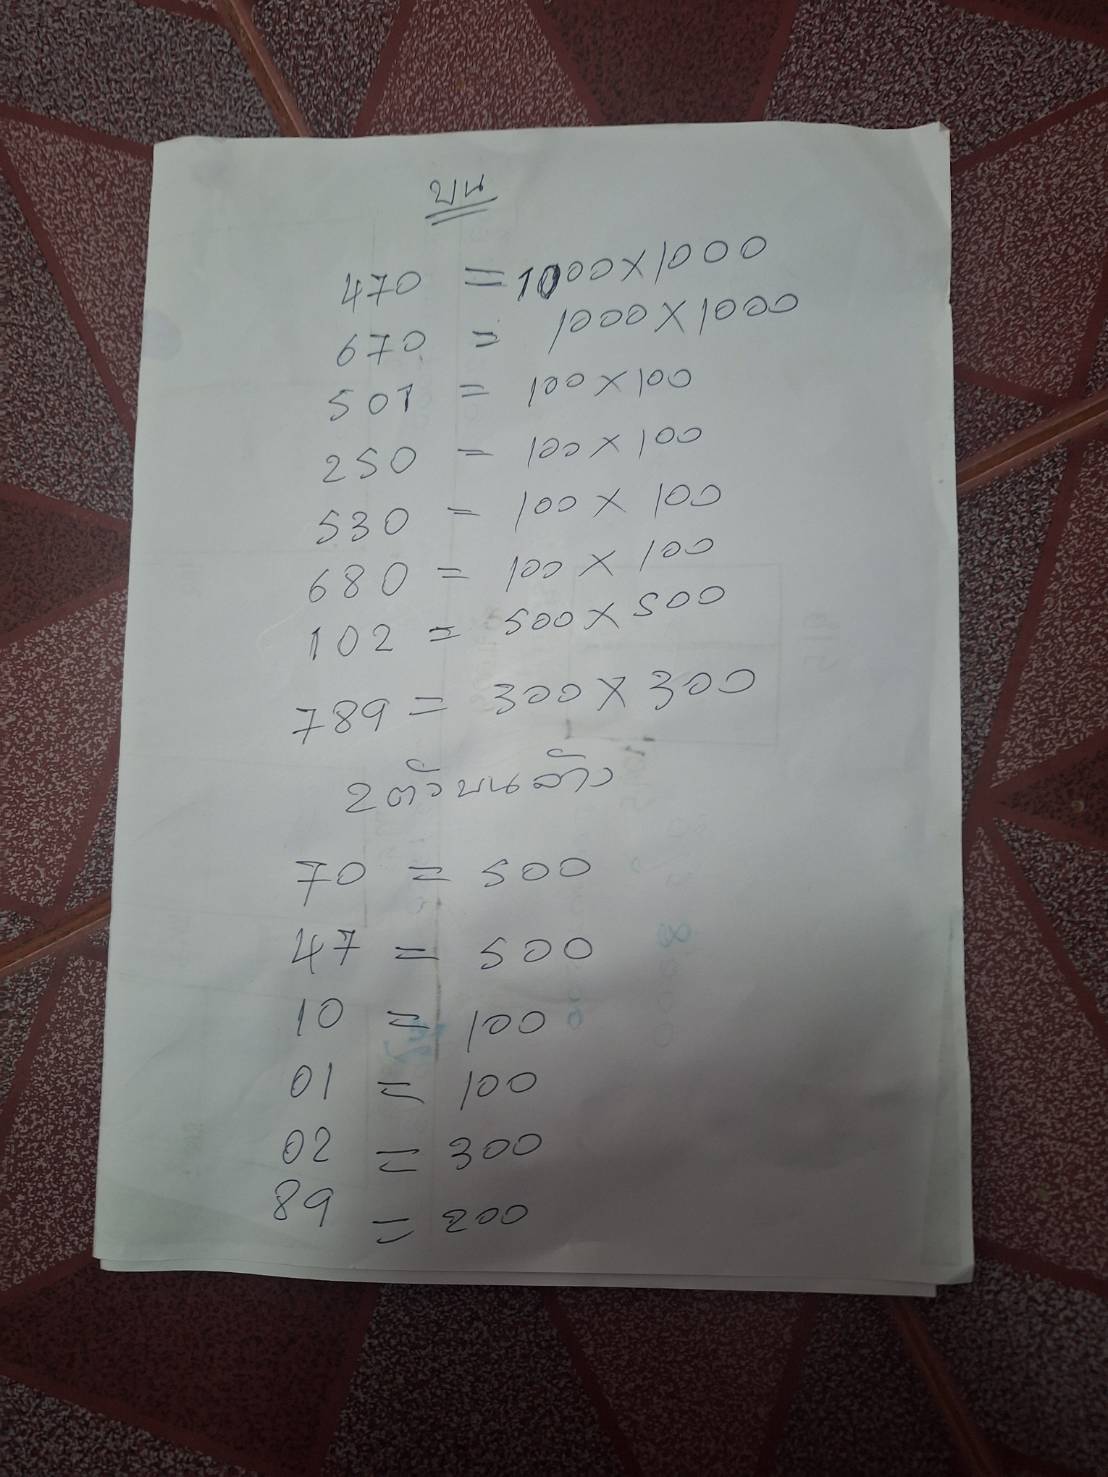 บน
470 = 1000×1000
670 = 1000×1000
501 = 100×100
250 = 100×100
530 = 100×100
680 = 100×100
102 = 500×500
789 = 300×300
2ตัวบนล่าง
70 = 500
47 = 500
10 = 100
01 = 100
02 = 300
89 = 200